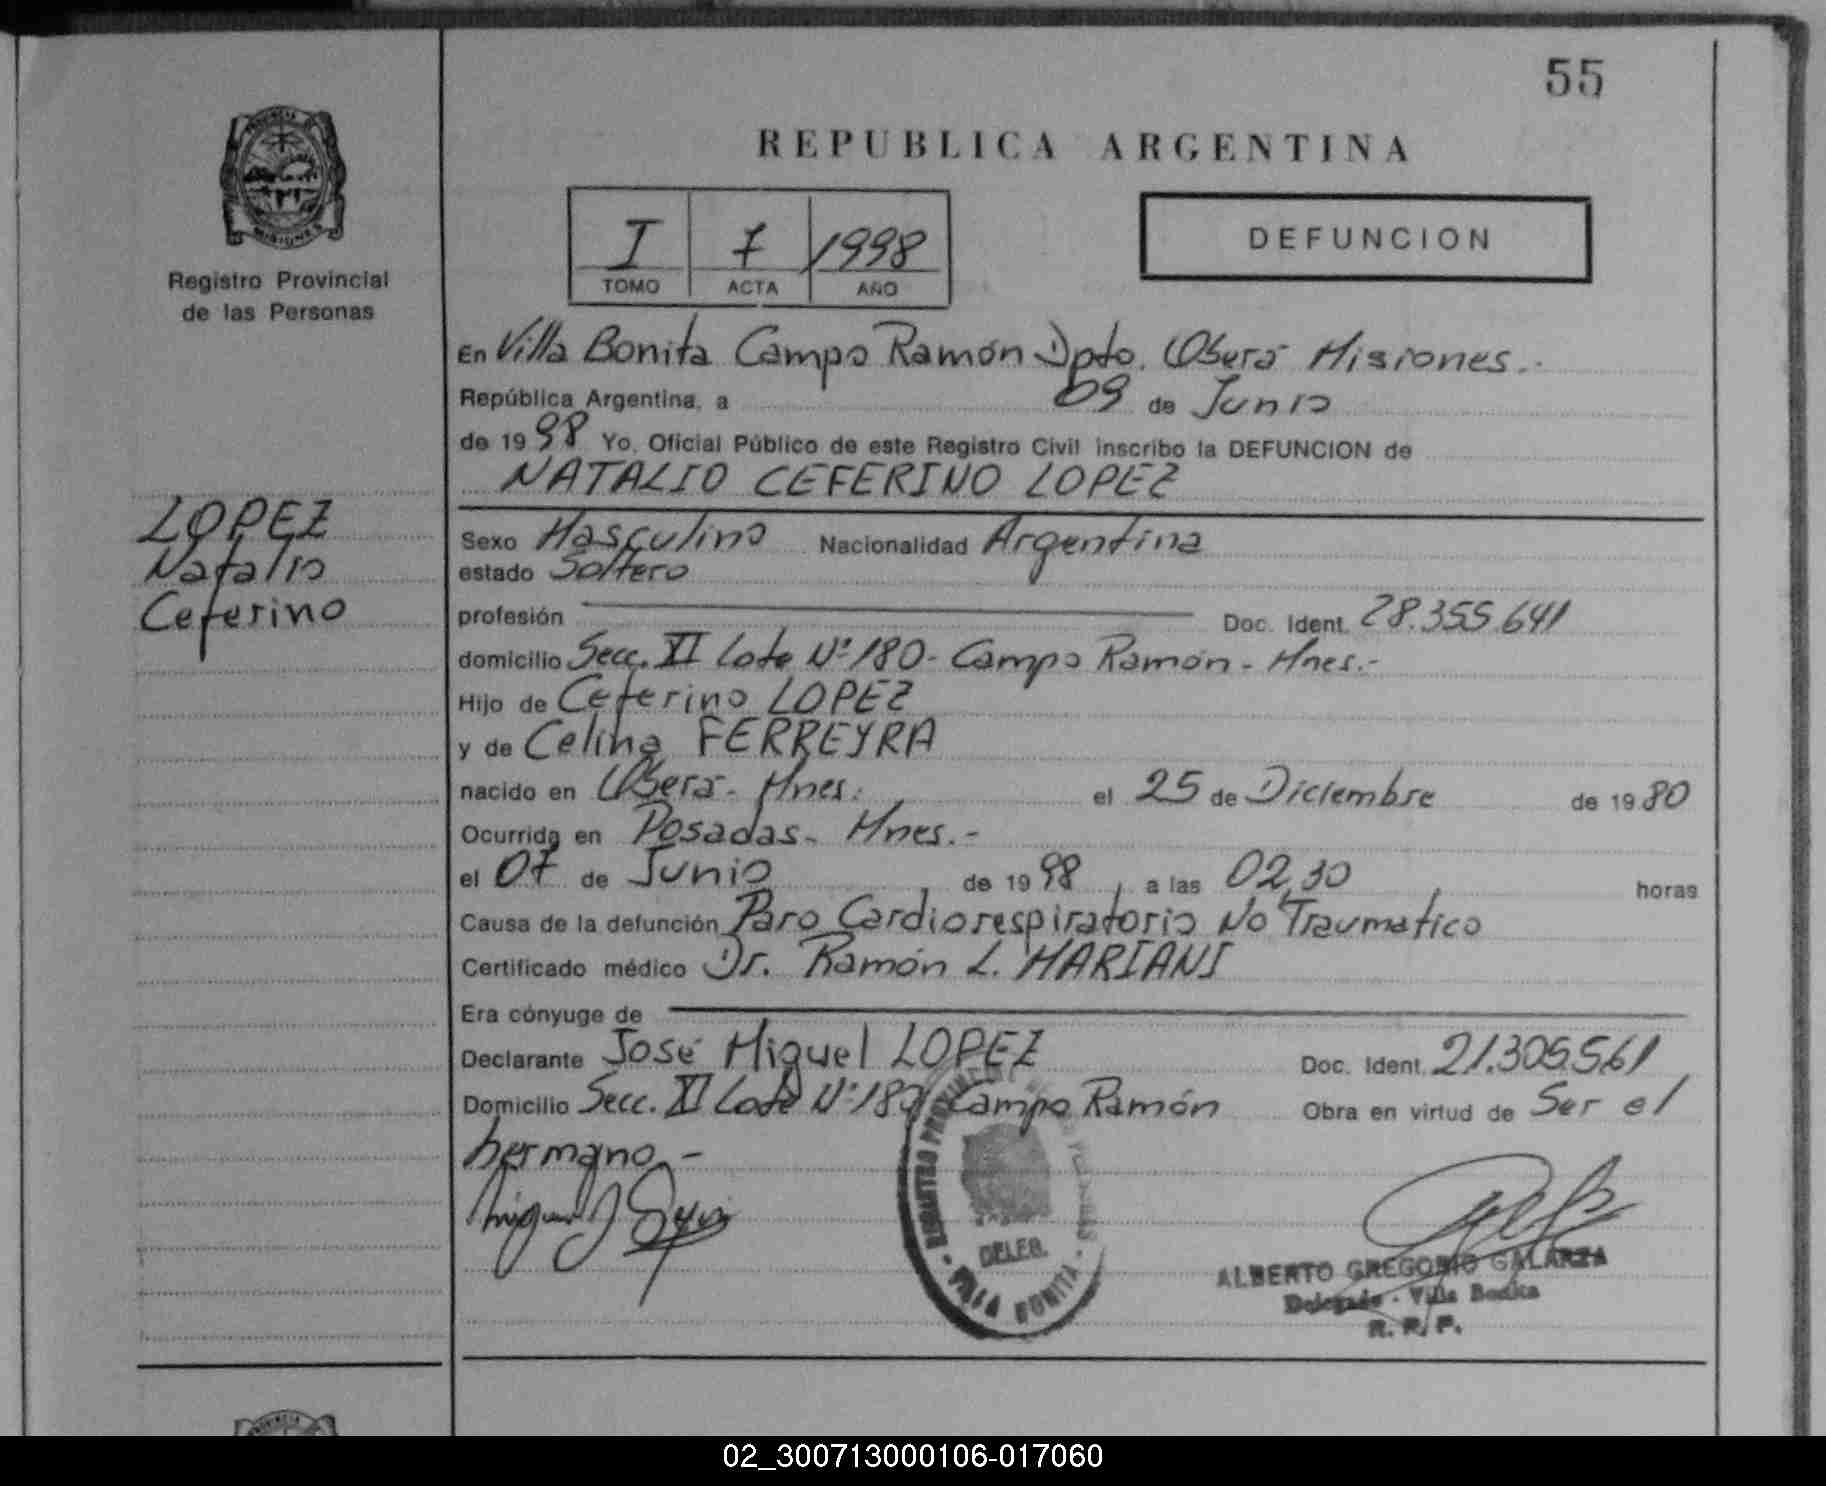 55
PROVINCIA DE
MISIONES
Registro Provincial
de las Personas
REPUBLICA ARGENTINA
I 7 1998
TOMO ACTA AÑO
DEFUNCION
En Villa Bonita Campo Ramón Dpto. Oberá Misiones.-
República Argentina, a 09 de Junio
de 1998 Yo, Oficial Público de este Registro Civil inscribo la DEFUNCION de
NATALIO CEFERINO LOPEZ
LOPEZ
Natalio
Ceferino
Sexo Masculino Nacionalidad Argentina
estado Soltero
profesión Doc. Ident. 28.355.641
domicilio Secc. XI Lote Nº 180- Campo Ramón- Mnes.-
Hijo de Ceferino LOPEZ
y de Celina FERREYRA
nacido en Oberá- Mnes. el 25 de Diciembre de 1980
Ocurrida en Posadas- Mnes.-
el 07 de Junio de 1998, a las 02,30 horas
Causa de la defunción Paro Cardiorespiratorio No Traumatico
Certificado médico Dr. Ramón L. MARIANI
Era cónyuge de
Declarante José Miguel LOPEZ Doc. Ident. 21.305.561
Domicilio Secc. XI Lote Nº 180 Campo Ramón Obra en virtud de Ser el
hermano.-
REGISTRO PROVINCIAL DE LAS PERSONAS
DELEG.
VILLA BONITA
ALBERTO GREGORIO GALARZA
Delegado - Villa Bonita
R. P. P.
PROVINCIA
02_300713000106-017060